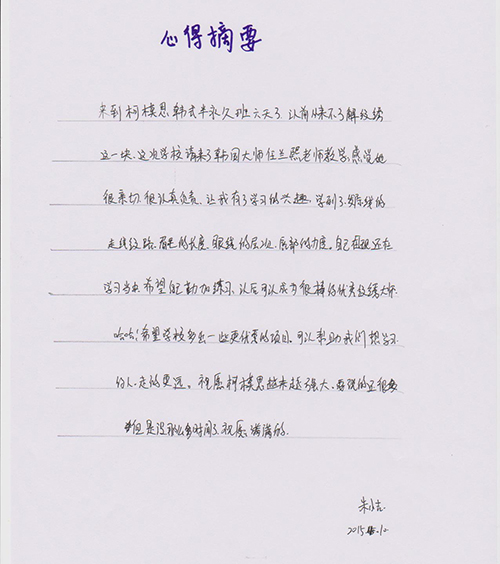 心得摘要
来到柯模思韩式半永久班六天了,以前从来不了解纹绣
这一块,这次学校请来了韩国大师任兰熙老师教学,感觉她
很亲切,很认真负责,让我有了学习的兴趣,学到了眼线的
走线纹路,眉毛的长度,眼线的层次,唇部的力度。自己现在还在
学习当中希望自己勤加练习,以后可以成为很棒的优秀纹绣大师
哈哈!希望学校多出一些更优秀的项目,可以帮助我们想学习
的人,走的更远。祝愿柯模思越来越强大,要说的还很多
但是没那么多时间了,祝愿,满满的.
朱洁
2015.10